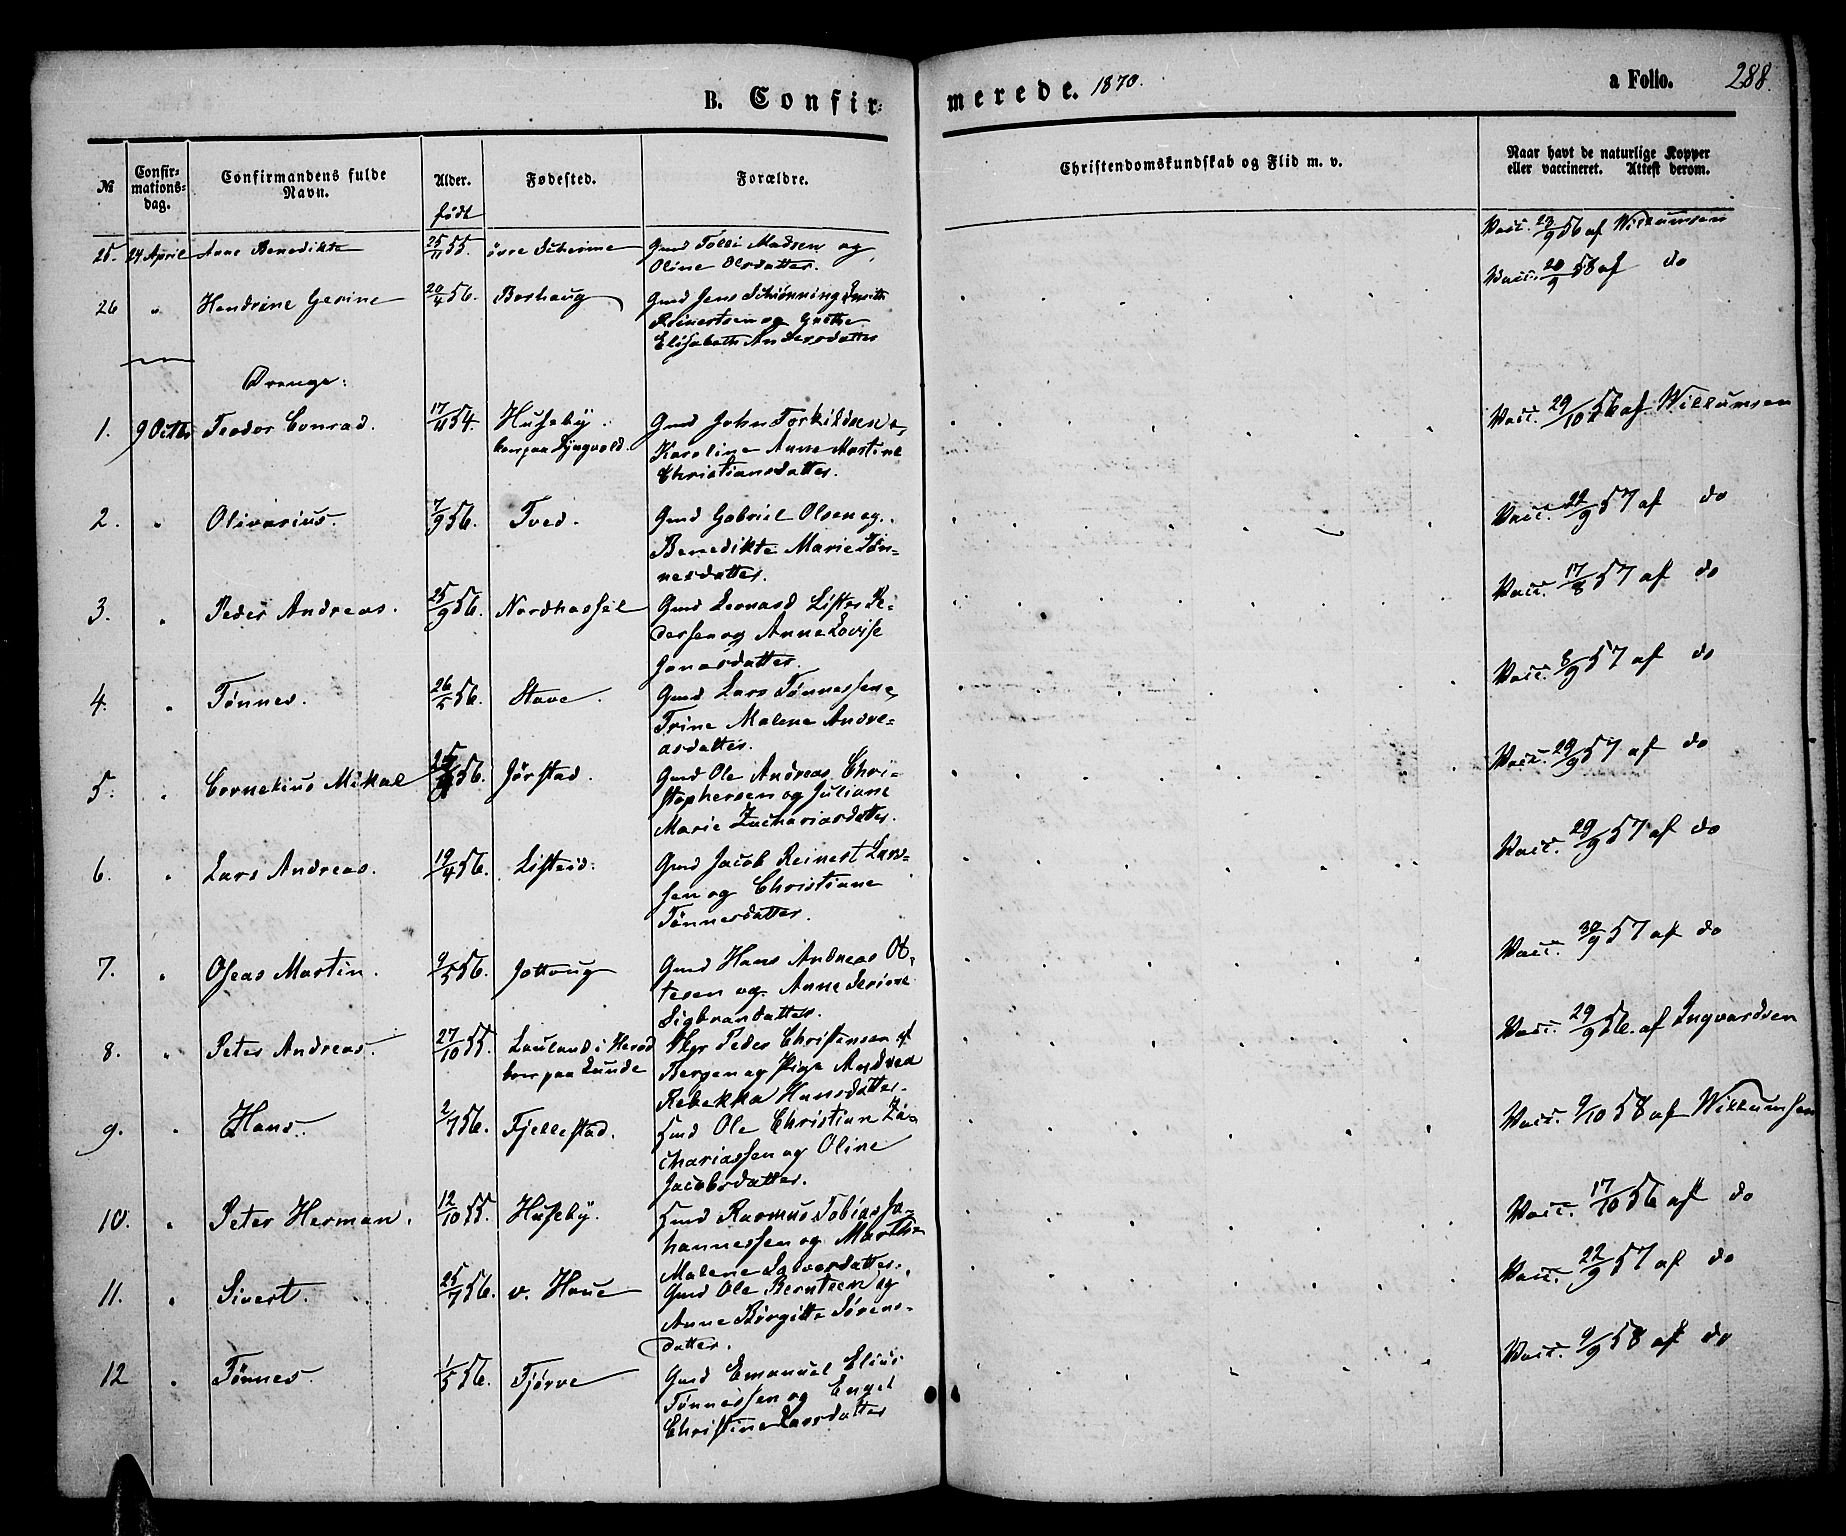 B. Confir- merede. 1870. a Folio. 288.
№ Confir-mations-dag. Confirmandens fulde Navn. Alder. Fødested. Forældre. Christendomskundskab og Flid m. v. Naar havt de naturlige Kopper eller vaccineret. Attest derom.
født
25. 24 April Anne Benedikte 25/11 55. øvre Gmd Tolli Madsen og Vacc. 9 56 af Willumsen
Oline Olsdatter. Vacc. 20/9 58 af do
26 " Hendrine Gesine 20/4 56. Borhaug Gmd Jens
Reinertsen og Grethe
Elisabeth Andersdatter
Vange:
1. 9 Octbr Teodor Conrad. 17/11 54. Huseby. Gmd John Torkildsen og Vacc. 29/10 56 af Willumsen
boer paa Karoline Anne Martine
Christiansdatter.
2. " Olivarius. 7/9 56. Tved. Gmd Gabriel Olsen og Vacc. 22/9 57 af do
Benedikte Marie Tøn-
nesdatter.
3. " Peder Andreas. 25/9 56. Nordhassel Gmd Leonard Lister Pe- Vacc. 17/8 57 af do
dersen og Anne Lovise
Jonasdatter.
4. " Tønnes. 26/5 56. Stave. Gmd Lars Tønnessen og Vacc. 8/9 57 af do
Trine Malene Andre-
asdatter.
5. " Cornelius Mikal 56. Jørstad. Gmd Ole Andreas Chri- Vacc. 29/9 57 af do
stophersen og Juliane
Marie Zachariasdatter.
6. " Lars Andreas. 19/4 56. Listeid. Gmd Jacob Reinert Lars- Vacc. 29/9 57 af do
sen og Christiane
Tønnesdatter.
7. " Oseas Martin. 9/5 56. Jottoug Gmd Hans Andreas Ot- Vacc. 30/9 57 af do
tesen og Anne Serine
Sigbrandatter.
8. " Peter Andreas. 27/10 55. Lauland i Herød Peder Christensen af Vacc. 29/9 56. af Ingvardsen
boer paa Lunde Bergen og Pige Andrea
Rebekka Hansdatter.
9. " Hans. 2/7 56. Fjellestad. Gmd Ole Christian Za- Vacc. 9/10 58 af Willumsen
chariassen og Oline
Jacobsdatter.
10. " Peter Herman. 12/10 55. Huseby. Gmd Rasmus Tobias Jo- Vacc. 17/10 56 af do
hannessen og Marthe
Malene
11. " Sivert. 25/7 56. v. Haue Gmd Ole Berntsen og Vacc. 22/9 57 af do
Anne Børgitte Sørens-
datter.
12 " Tønnes. 1/5 56. Tjørve Gmd Emanuel Elias Vacc. 9/9 58 af do
Tønnessen og Engel
Christine Larsdatter